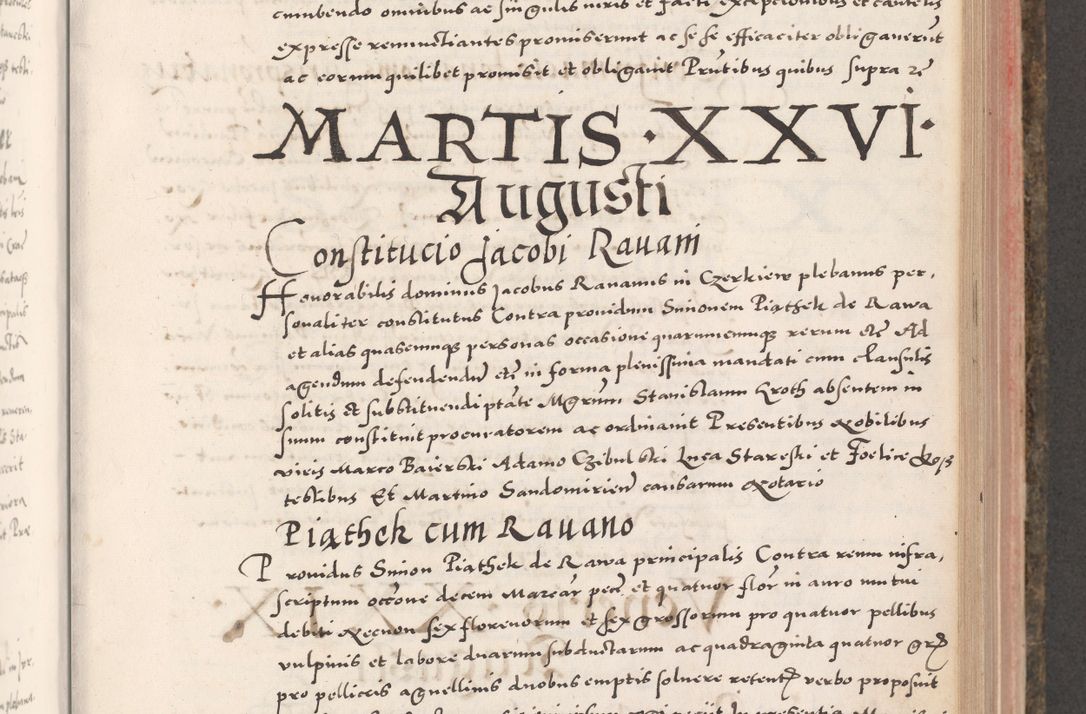 cumbendo omnibus ac singulis iuris et facti excepcionibus et cautelis
expresse renunctiantes promiserunt ac se se efficaciter obliganerut
ac eorum quilibet promisit et obligauit Pñtibus quibus supra
MARTIS · XXVI ·
Augusti
Constitucio Jacobi Rauani
Honorabilis dominus Jacobus Rauanus in Czerkiew plebanus per,
sonaliter constitutus Contra prouidum Simonem Piąthek de Rawa
et alias quascumqз personas occasione quarumcumqз rerum etc Ad
agendum defendendū etc in forma plenissima mandati cum clausulis
solitis et substituendi ptāte Mgrum Stanislaum Kroth absentem in
suum constituit procuratorem ac ordinauit Presentibus Nobilibus
viris Marco Baierski Adamo Czibulski Luca Stareski et Foelice
testibus Et Martino Sandomirien causarum Notario
Piąthek cum Rauano
Prouidus Simon Piąthek de Rawa principalis Contra reum infra,
scriptum occōne decem Marcar pecē et quatuor flor in auro mutui
debiti Necnon sex florenorum et sex grossorum pro quatuor pellibus
vulpinis et labore duarum subductarum ac quadraginta quatuor gr
pro pelliciis agnellinis duobus emptis soluere retent verbo proposuit